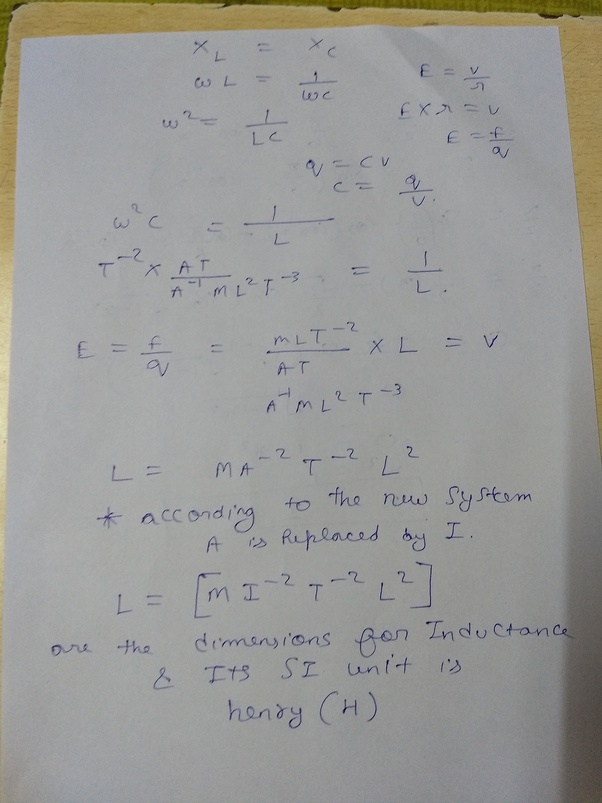 X_L = X_C
ωL = 1/ωC
E = v/r
ω² = 1/LC
E × r = v
E = f/q
q = CV
C = q/V.
ω²C = 1/L
T⁻² × AT/A⁻¹ M L² T⁻³ = 1/L.
E = f/q = MLT⁻²/AT × L = V
A⁻¹ M L² T⁻³
L = MA⁻² T⁻² L²
* according to the new System
A is Replaced by I.
L = [M I⁻² T⁻² L²]
are the dimensions for Inductance
& Its SI unit is
henry (H)